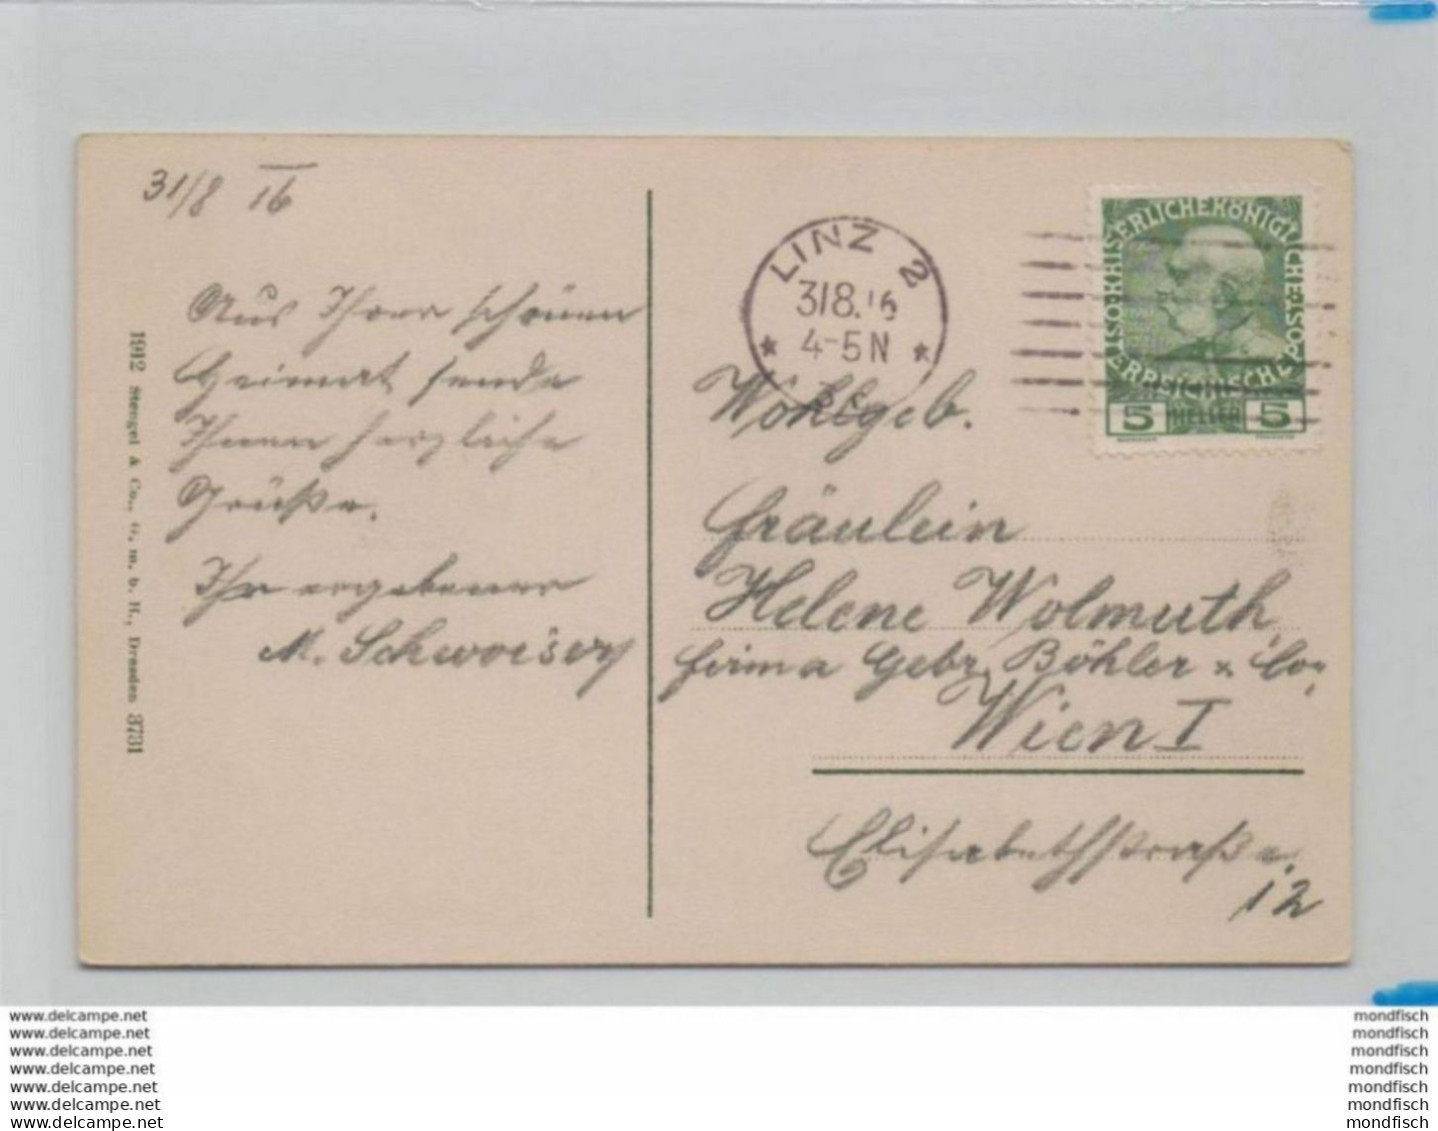 31/8 16
Aus Ihrer schönen
Heimat sende
Ihnen herzliche
Grüße.
Ihr ergebener
M. Schwoiser
1912 Stengel & Co., G. m. b. H., Dresden 3731
LINZ 2
31 8. 16
4-5 N
KAISERLICHE KÖNIGLICHE ÖSTERREICHISCHE POST
5 HELLER 5
Wohlgeb.
Fräulein
Helene Wolmuth
Firma Gebr. Böhler & Co.,
Wien I
Elisabethstraße.
12
www.delcampe.net
www.delcampe.net
www.delcampe.net
www.delcampe.net
www.delcampe.net
www.delcampe.net
www.delcampe.net
mondfisch
mondfisch
mondfisch
mondfisch
mondfisch
mondfisch
mondfisch